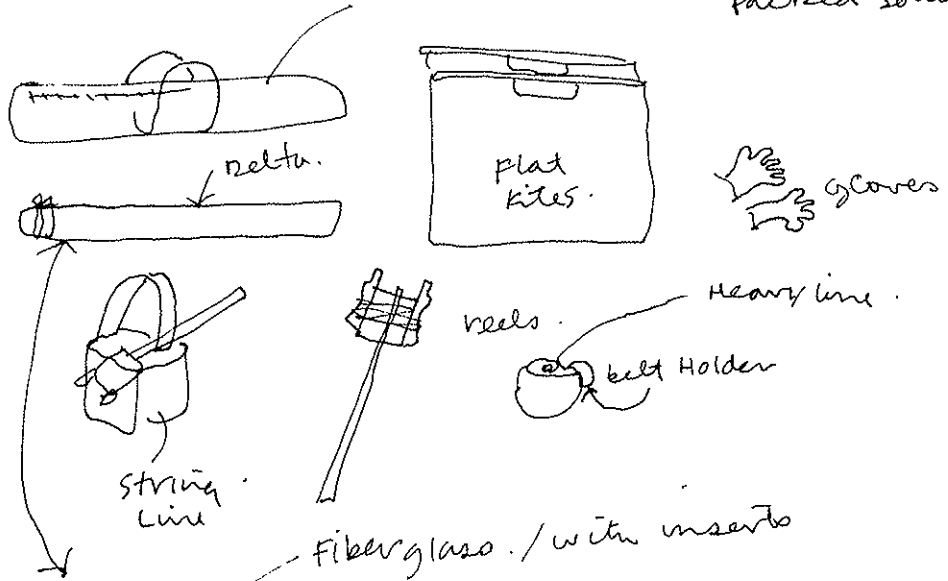 packed
Delta.
Flat
kites.
gloves
Heavy line.
reels.
belt Holder
string.
Line
Fiberglass. / with inserts